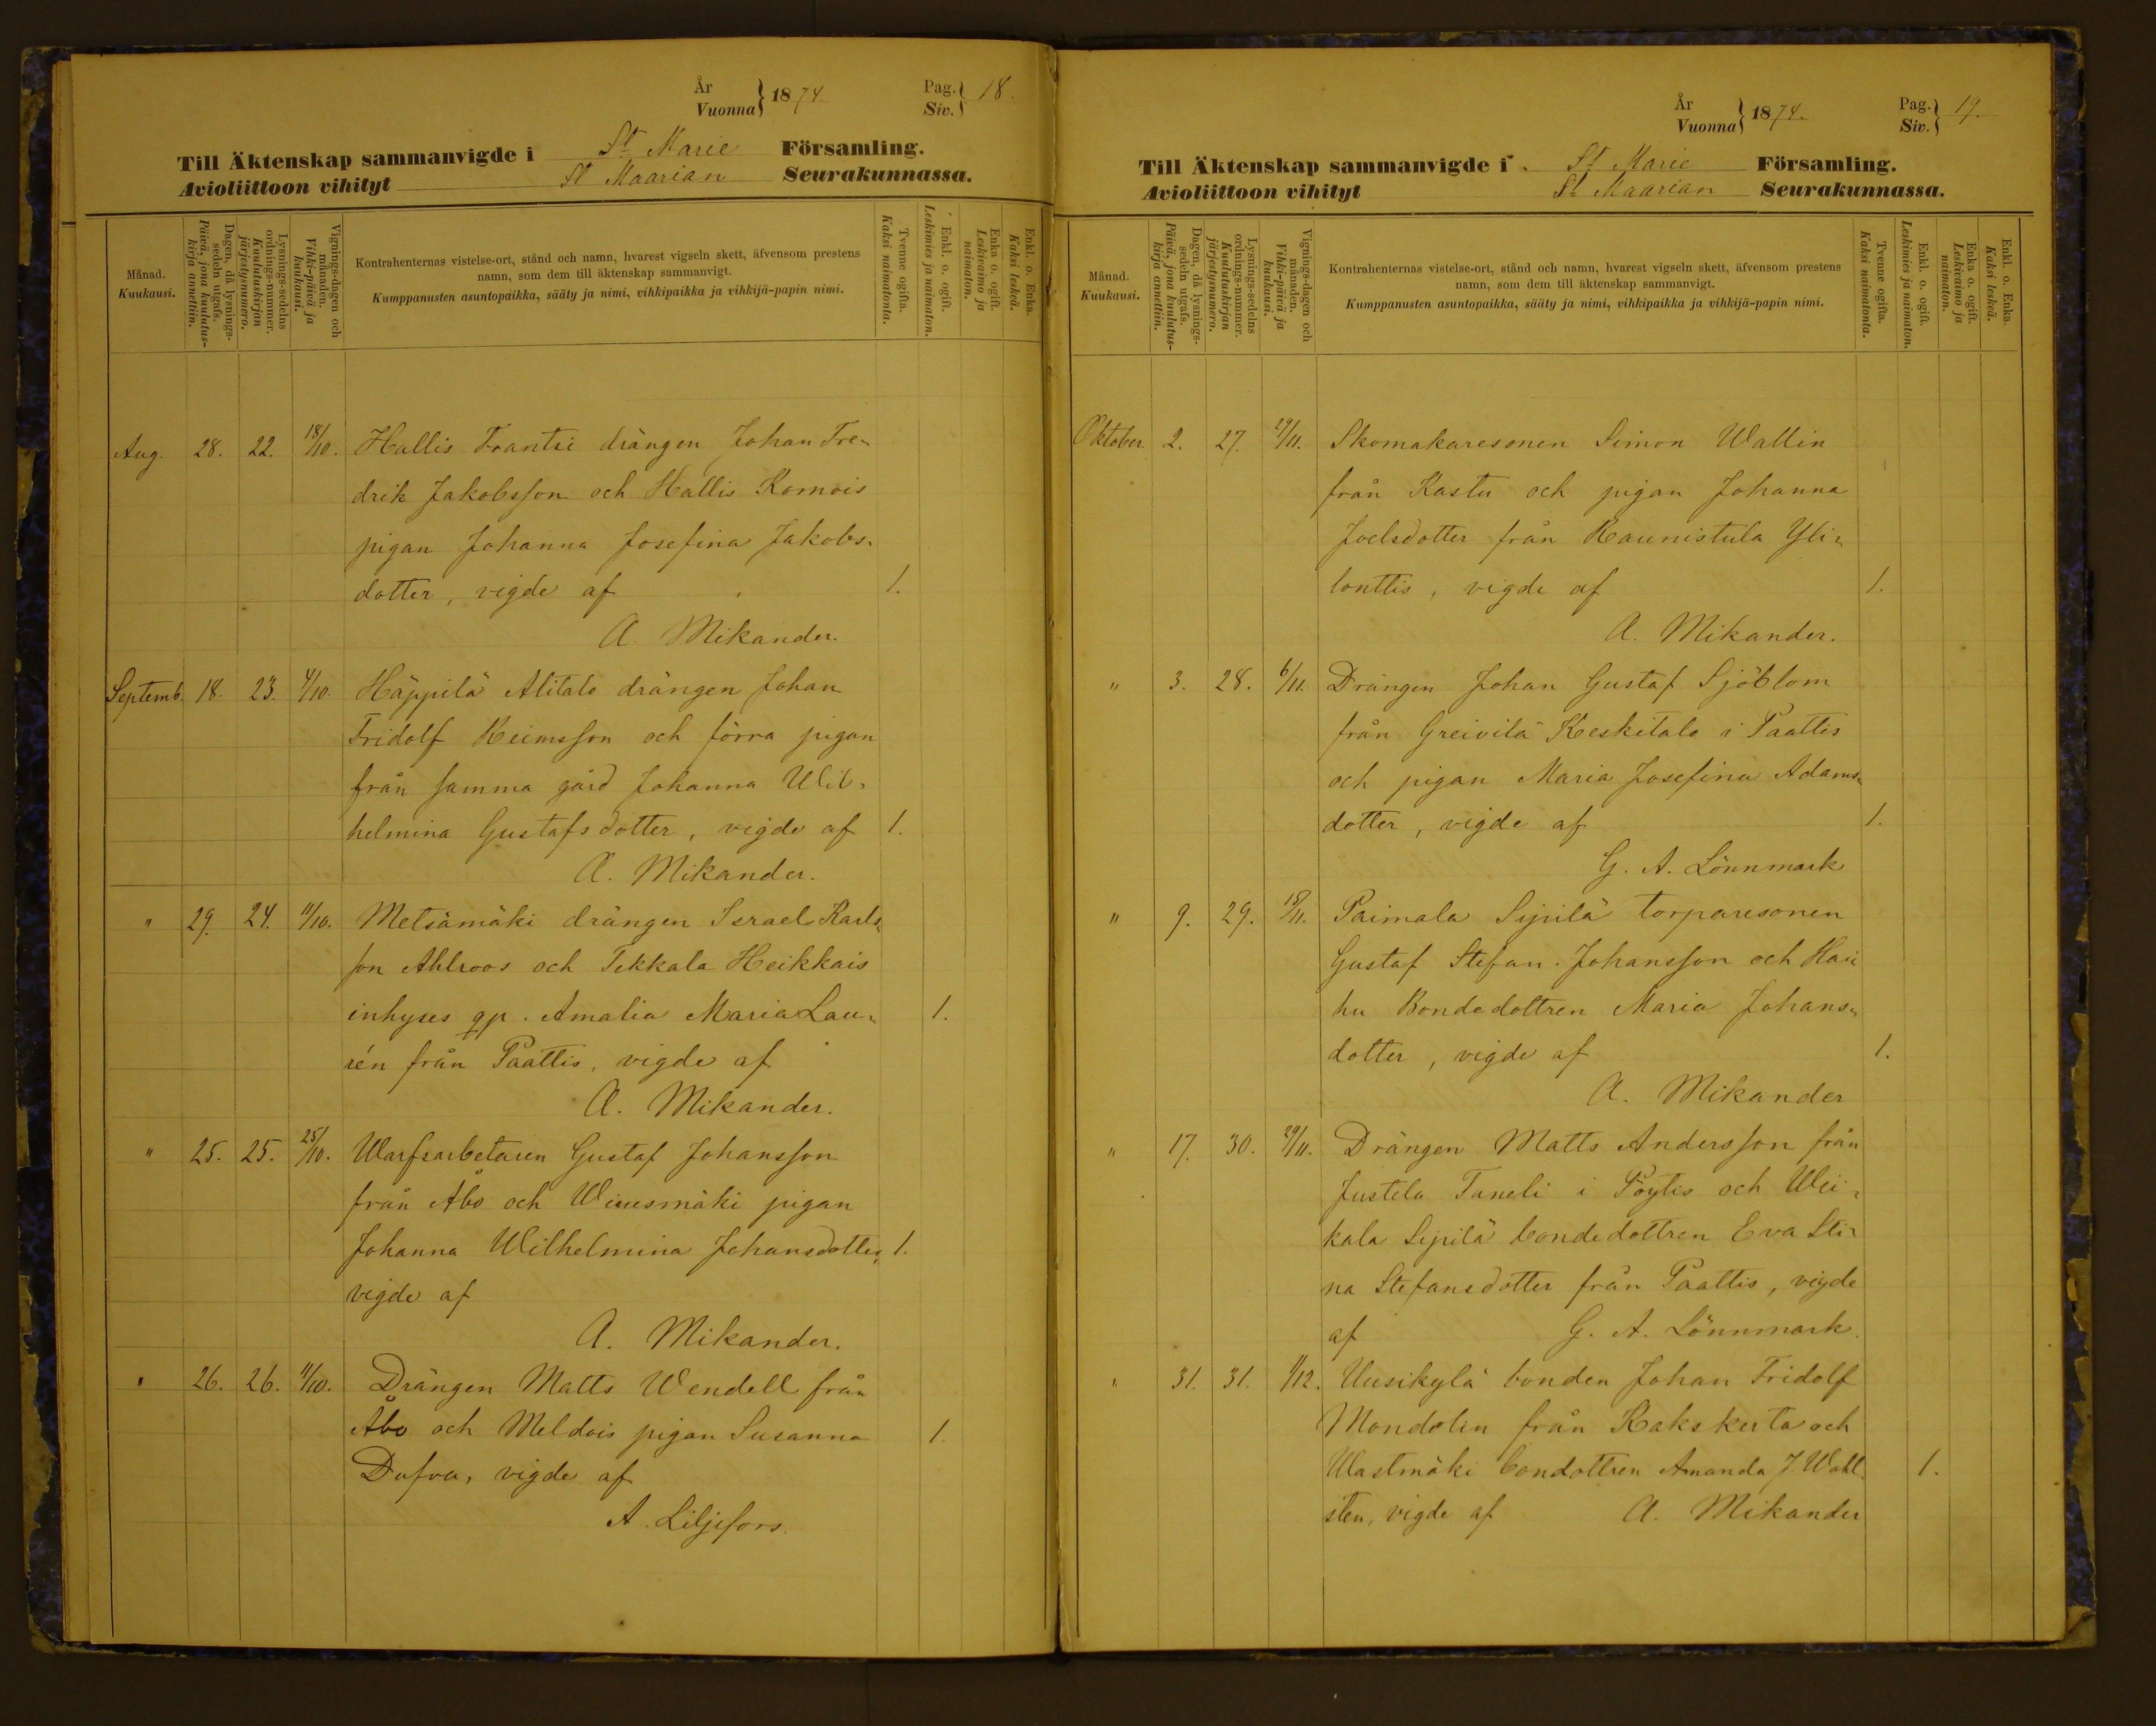 År
Vuonna } 1874.
Pag.
Siv. } 18.
Till Äktenskap sammanvigde i St Marie Församling.
Avioliittoon vihityt St Maarian Seurakunnassa.
Månad.
Kuukausi.
Dagen, då lysnings-
sedeln utgafs.
Päivä, jona kuulutus-
kirja annettiin.
Lysnings-sedelns
ordnings-nummer.
Kuulutuskirjan
järjestysnumero.
Vignings-dagen och
månaden.
Vihki-päivä ja
kuukausi.
Kontrahenternas vistelse-ort, stånd och namn, hvarest vigseln skett, äfvensom prestens
namn, som dem till äktenskap sammanvigt.
Kumppanusten asuntopaikka, sääty ja nimi, vihkipaikka ja vihkijä-papin nimi.
Tvenne ogifta.
Kaksi naimatonta.
Enkl. o. ogift.
Leskimies ja naimaton.
Enka o. ogift.
Leskivaimo ja
naimaton.
Enkl. o. Enka.
Kaksi leskeä.
Aug. 28. 22. 18/10. Hallis Frantsi drängen Johan Fre-
drik Jakobsson och Hallis Kornois
pigan Johanna Josefina Jakobs-
dotter, vigde af 1.
A. Mikander.
Septemb. 18. 23. 4/10. Häppilä Alitalo drängen Johan
Fridolf Reimsson och förra pigan
från samma gård Johanna Wil-
helmina Gustafsdotter, vigde af 1.
A. Mikander.
" 29. 24. 11/10. Metsämäki drängen Israel Karls-
son Ahlroos och Tekkala Heikkais
inhyses qp. Amalia Maria Lau- 1.
rén från Paattis, vigde af
A. Mikander.
" 25. 25. 25/10. Warfsarbetaren Gustaf Johansson
från Åbo och Wiuusmäki pigan
Johanna Wilhelmina Johansdotter, 1.
vigde af
A. Mikander.
" 26. 26. 11/10. Drängen Matts Wendell från
Åbo och Meldois pigan Susanna 1.
Dufva, vigde af
A. Liljefors.
År
Vuonna } 1874.
Pag.
Siv. } 19.
Till Äktenskap sammanvigde i St Marie Församling.
Avioliittoon vihityt St Maarian Seurakunnassa.
Månad.
Kuukausi.
Dagen, då lysnings-
sedeln utgafs.
Päivä, jona kuulutus-
kirja annettiin.
Lysnings-sedelns
ordnings-nummer.
Kuulutuskirjan
järjestysnumero.
Vignings-dagen och
månaden.
Vihki-päivä ja
kuukausi.
Kontrahenternas vistelse-ort, stånd och namn, hvarest vigseln skett, äfvensom prestens
namn, som dem till äktenskap sammanvigt.
Kumppanusten asuntopaikka, sääty ja nimi, vihkipaikka ja vihkijä-papin nimi.
Tvenne ogifta.
Kaksi naimatonta.
Enkl. o. ogift.
Leskimies ja naimaton.
Enka o. ogift.
Leskivaimo ja
naimaton.
Enkl. o. Enka.
Kaksi leskeä.
Oktober. 2. 27. 29/11. Skomakaresonen Simon Wallin
från Kastu och pigan Johanna
Joelsdotter från Raunistula Yli-
lonttis, vigde af 1.
A. Mikander.
" 3. 28. 6/11. Drängen Johan Gustaf Sjöblom
från Greivilä Keskitalo i Paattis
och pigan Maria Josefina Adams-
dotter, vigde af 1.
G. A. Lönnmark
" 9. 29. 18/11. Paimala Sipilä torparesonen
Gustaf Stefan Johansson och Hau
hu Bondedottren Maria Johans-
dotter, vigde af 1.
A. Mikander
" 17. 30. 29/11. Drängen Matts Andersson från
Justela Taneli i Pöytis och Wei-
kala Sipilä bondedottren Eva Sti-
na Stefansdotter från Paattis, vigde
af G. A. Lönnmark.
" 31. 31. 1/12. Uusikylä bonden Johan Fridolf
Mondolin från Kakskerta och
Wastmäki bondottren Amanda J. Wahl- 1.
sten, vigde af A. Mikander